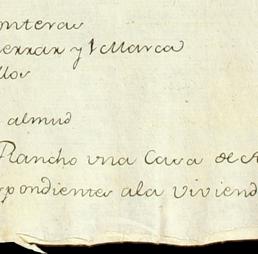 onteras
errar y 1 Marca
llos
almud
Rancho una Casa de
pondientes ala viviend